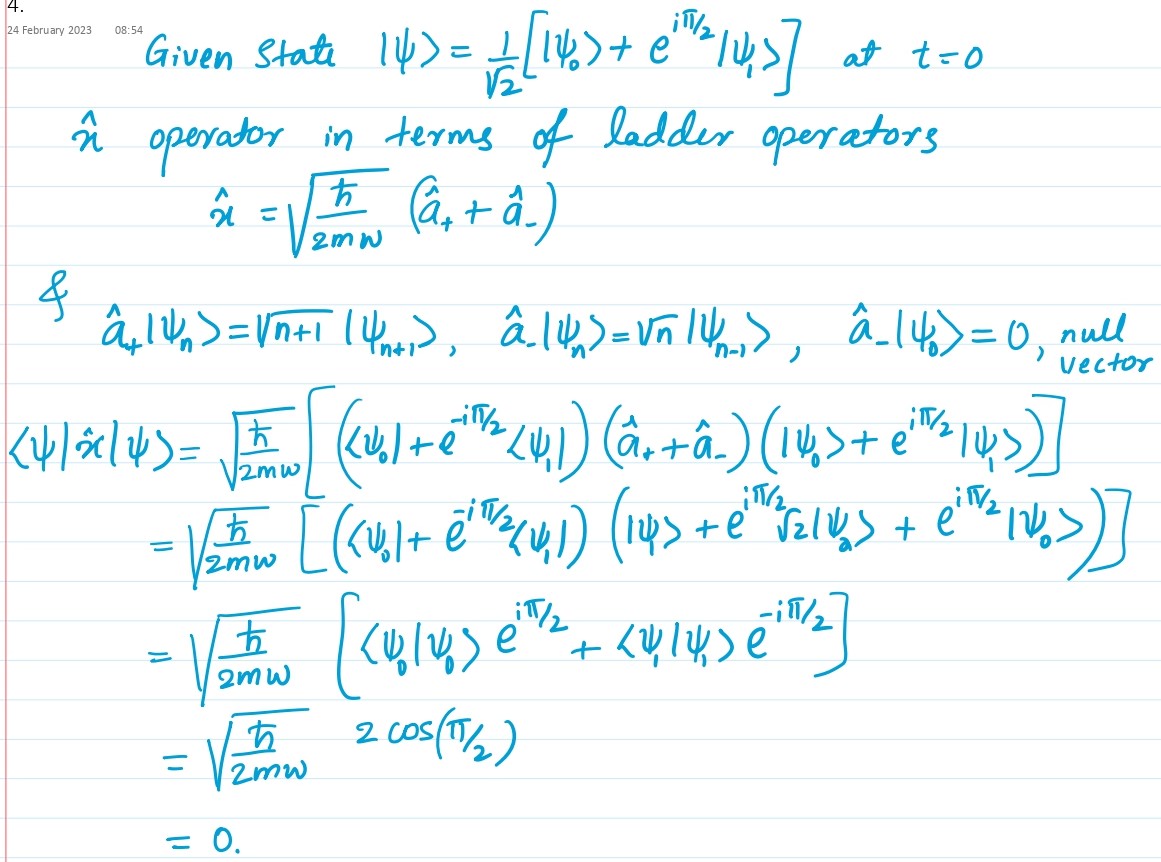 4.
24 February 2023 08:54
Given State |ψ⟩ = 1/√2 [|ψ₀⟩ + e^{iπ/2} |ψ₁⟩] at t=0
x̂ operator in terms of ladder operators
x̂ = √(ħ/2mω) (â₊ + â₋)
&
â₊|ψₙ⟩ = √(n+1) |ψₙ₊₁⟩, â₋|ψₙ⟩ = √n |ψₙ₋₁⟩, â₋|ψ₀⟩ = 0, null vector
⟨ψ|x̂|ψ⟩ = √(ħ/2mω) [(⟨ψ₀| + e^{-iπ/2} ⟨ψ₁|) (â₊ + â₋) (|ψ₀⟩ + e^{iπ/2} |ψ₁⟩)]
= √(ħ/2mω) [(⟨ψ₀| + e^{-iπ/2} ⟨ψ₁|) (|ψ⟩ + e^{iπ/2} √2 |ψ₂⟩ + e^{iπ/2} |ψ₀⟩)]
= √(ħ/2mω) [⟨ψ₀|ψ₀⟩ e^{iπ/2} + ⟨ψ₁|ψ₁⟩ e^{-iπ/2}]
= √(ħ/2mω) 2 cos(π/2)
= 0.